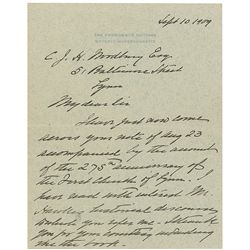 Sept 10. 1909
C. J. H. Woodbury Esq
51 Baltimore Street
Lynn
My dear Sir
I have just now come
across your note of Aug 23
accompanied by the account
of the 275th anniversary of
the First Church of Lynn. I
have read with interest Mr
historical discourse
you for sending
me the book.